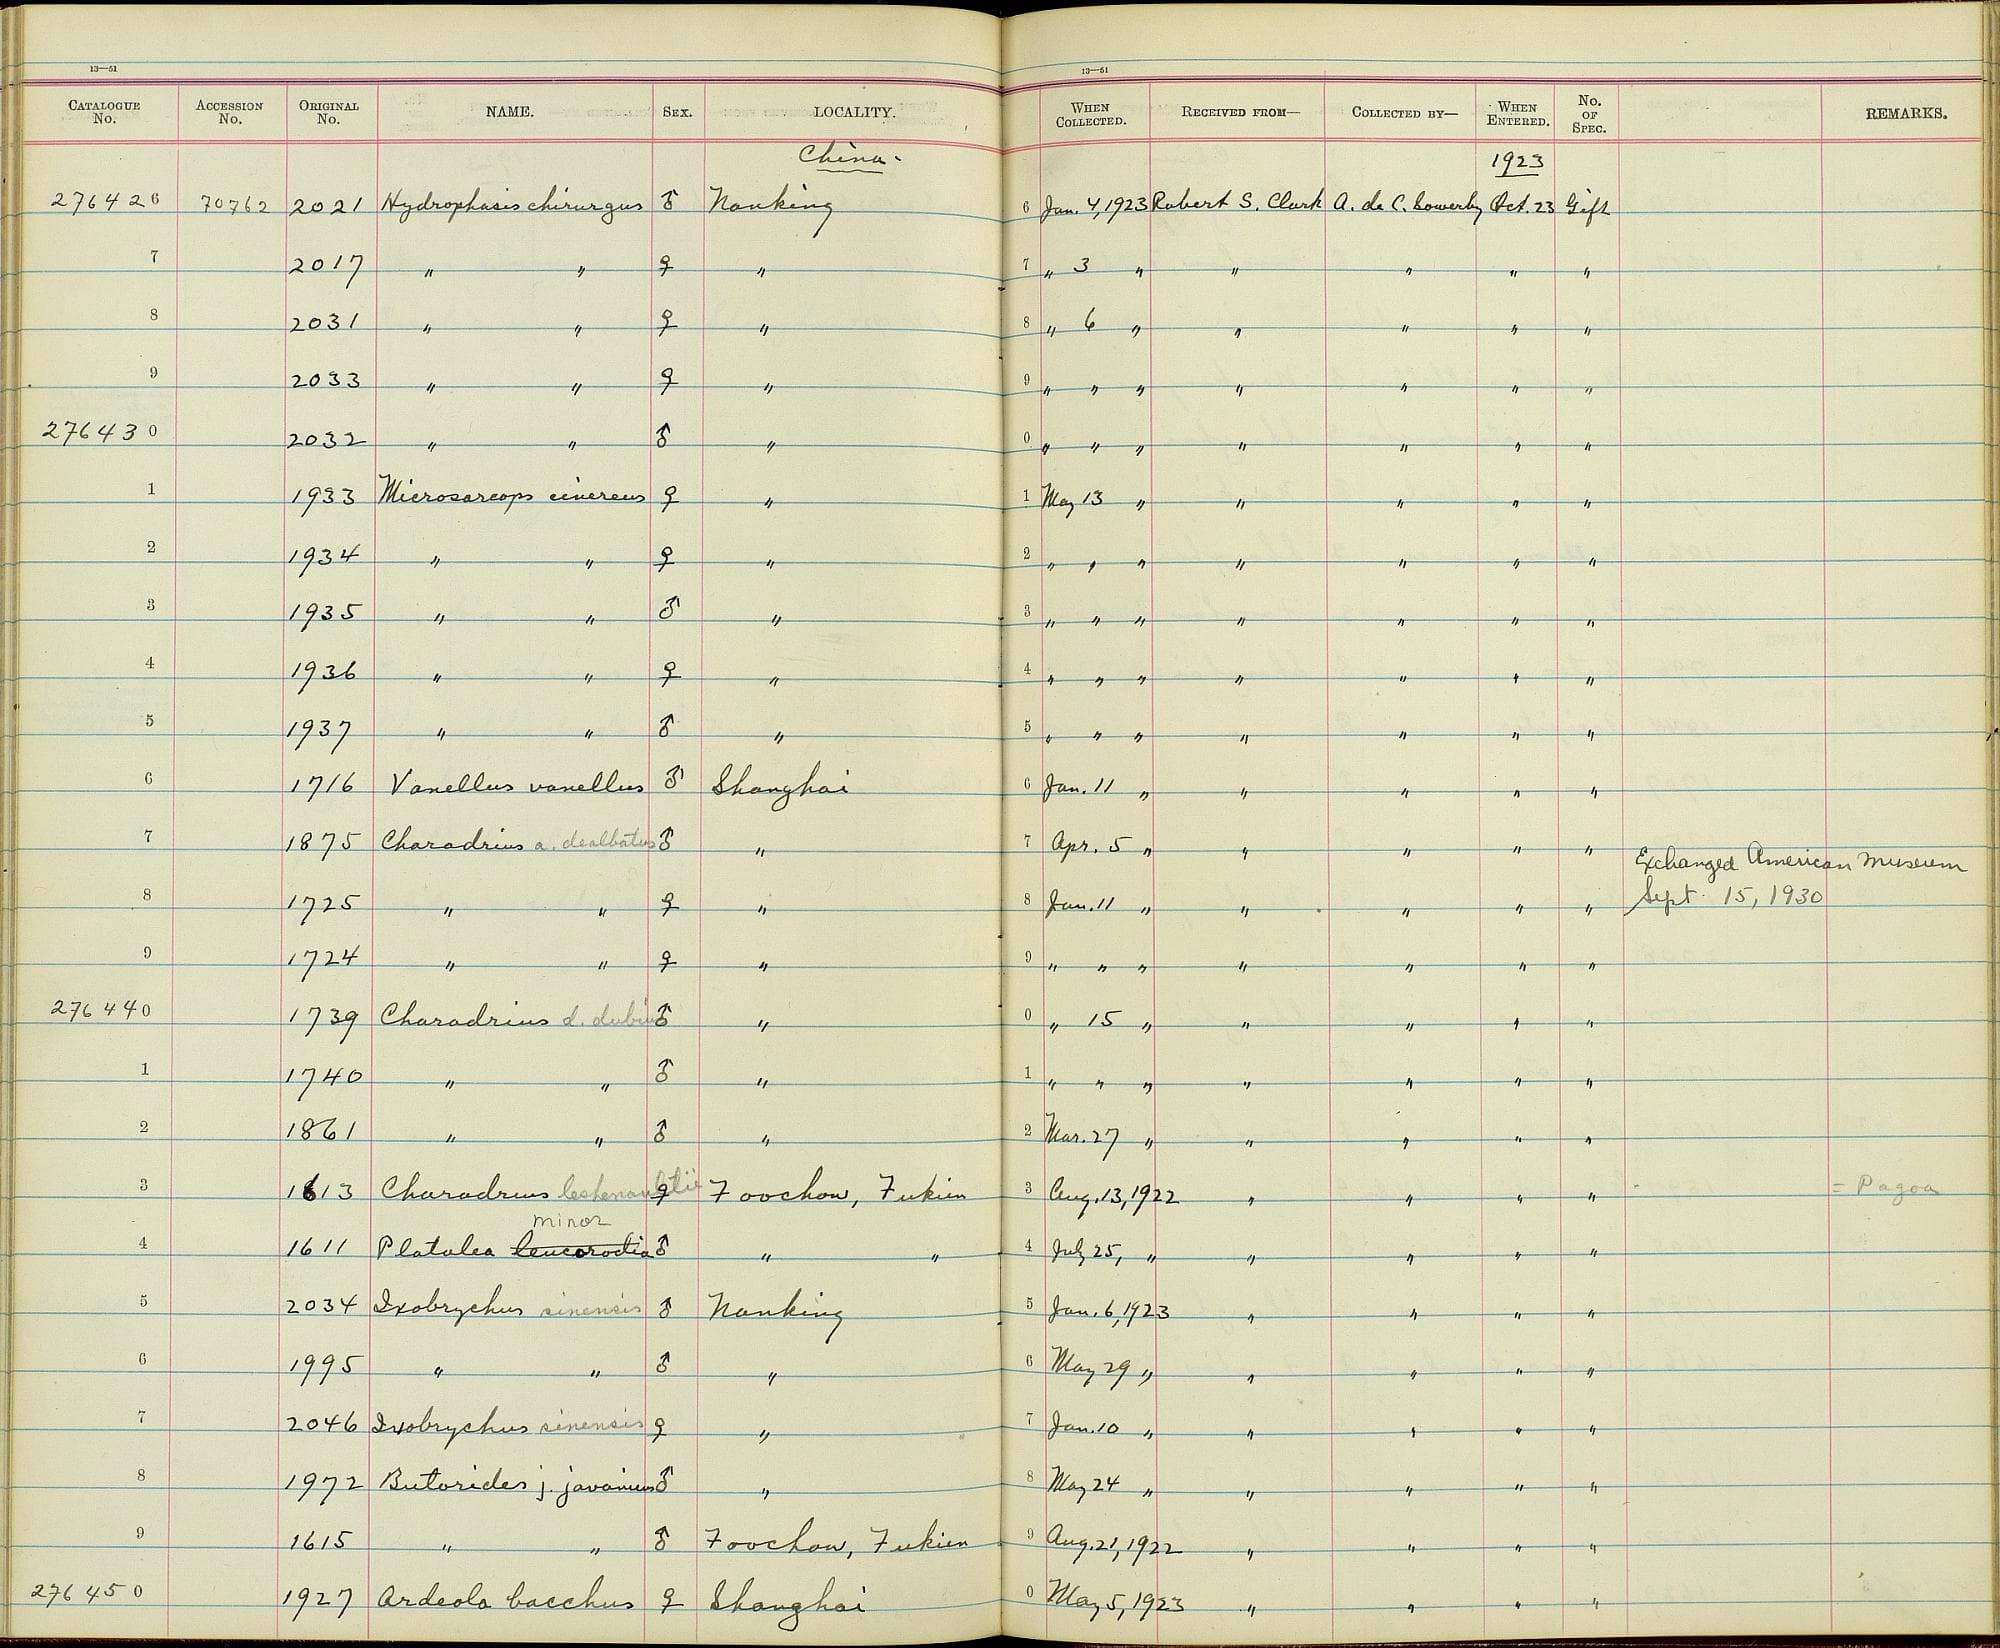 13—51
CATALOGUE No. ACCESSION No. ORIGINAL No. NAME. SEX. LOCALITY.
China.
276426 70762 2021 Hydrophasis chirurgus ♂ Nanking
7 2017 " " ♀ "
8 2031 " " ♀ "
9 2033 " " ♀ "
276430 2032 " " ♂ "
1 1933 Microsarcops cinereus ♀ "
2 1934 " " ♀ "
3 1935 " " ♂ "
4 1936 " " ♀ "
5 1937 " " ♂ "
6 1716 Vanellus vanellus ♂ Shanghai
7 1875 Charadrius a. dealbatus ♂ "
8 1725 " " ♀ "
9 1724 " " ♀ "
276440 1739 Charadrius d. dubius ♂ "
1 1740 " " ♂ "
2 1861 " " ♂ "
3 1613 Charadrius leshenaultii ♀ Foochow, Fukien
minor
4 1611 Platalea leucorodia ♂ " "
5 2034 Ixobrychus sinensis ♂ Nanking
6 1995 " " ♂ "
7 2046 Ixobrychus sinensis ♀ "
8 1972 Butorides j. javanicus ♂ "
9 1615 " " ♂ Foochow, Fukien
276450 1927 Ardeola bacchus ♀ Shanghai
13—51
WHEN COLLECTED. RECEIVED FROM— COLLECTED BY— WHEN ENTERED. No. OF SPEC. REMARKS.
1923
6 Jan. 4, 1923 Robert S. Clark A. de C. Sowerby Oct. 23 Gift
7 " 3 " " " " "
8 " 6 " " " " "
9 " " " " " " "
0 " " " " " " "
1 May 13 " " " " "
2 " " " " " " "
3 " " " " " " "
4 " " " " " " "
5 " " " " " " "
6 Jan. 11 " " " " "
7 Apr. 5 " " " " "
Exchanged American Museum
8 Jan. 11 " " " " " Sept. 15, 1930
9 " " " " " " "
0 " 15 " " " " "
1 " " " " " " "
2 Mar. 27 " " " " "
3 Aug. 13, 1922 " " " " = Pagoa
4 July 25, " " " " "
5 Jan. 6, 1923 " " " "
6 May 29 " " " " "
7 Jan. 10 " " " " "
8 May 24 " " " " "
9 Aug. 21, 1922 " " " "
0 May 5, 1923 " " " "